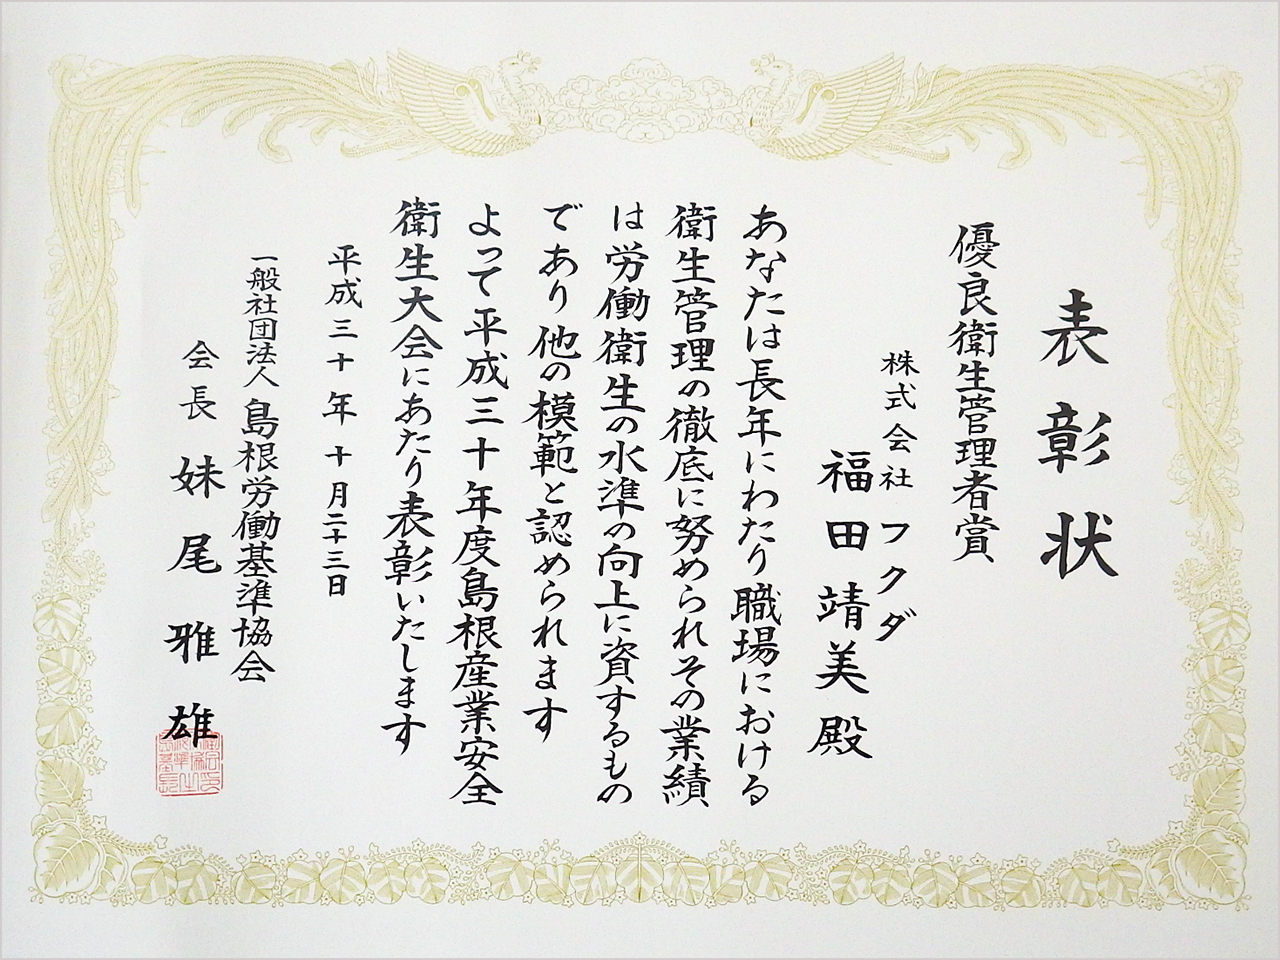 表彰状
優良衛生管理者賞
株式会社フクダ
福田靖美殿
あなたは長年にわたり職場における
衛生管理の徹底に努められその業績
は労働衛生の水準の向上に資するもの
であり他の模範と認められます
よって平成三十年度島根産業安全
衛生大会にあたり表彰いたします
平成三十年十月二十三日
一般社団法人島根労働基準協会
会長妹尾雅雄